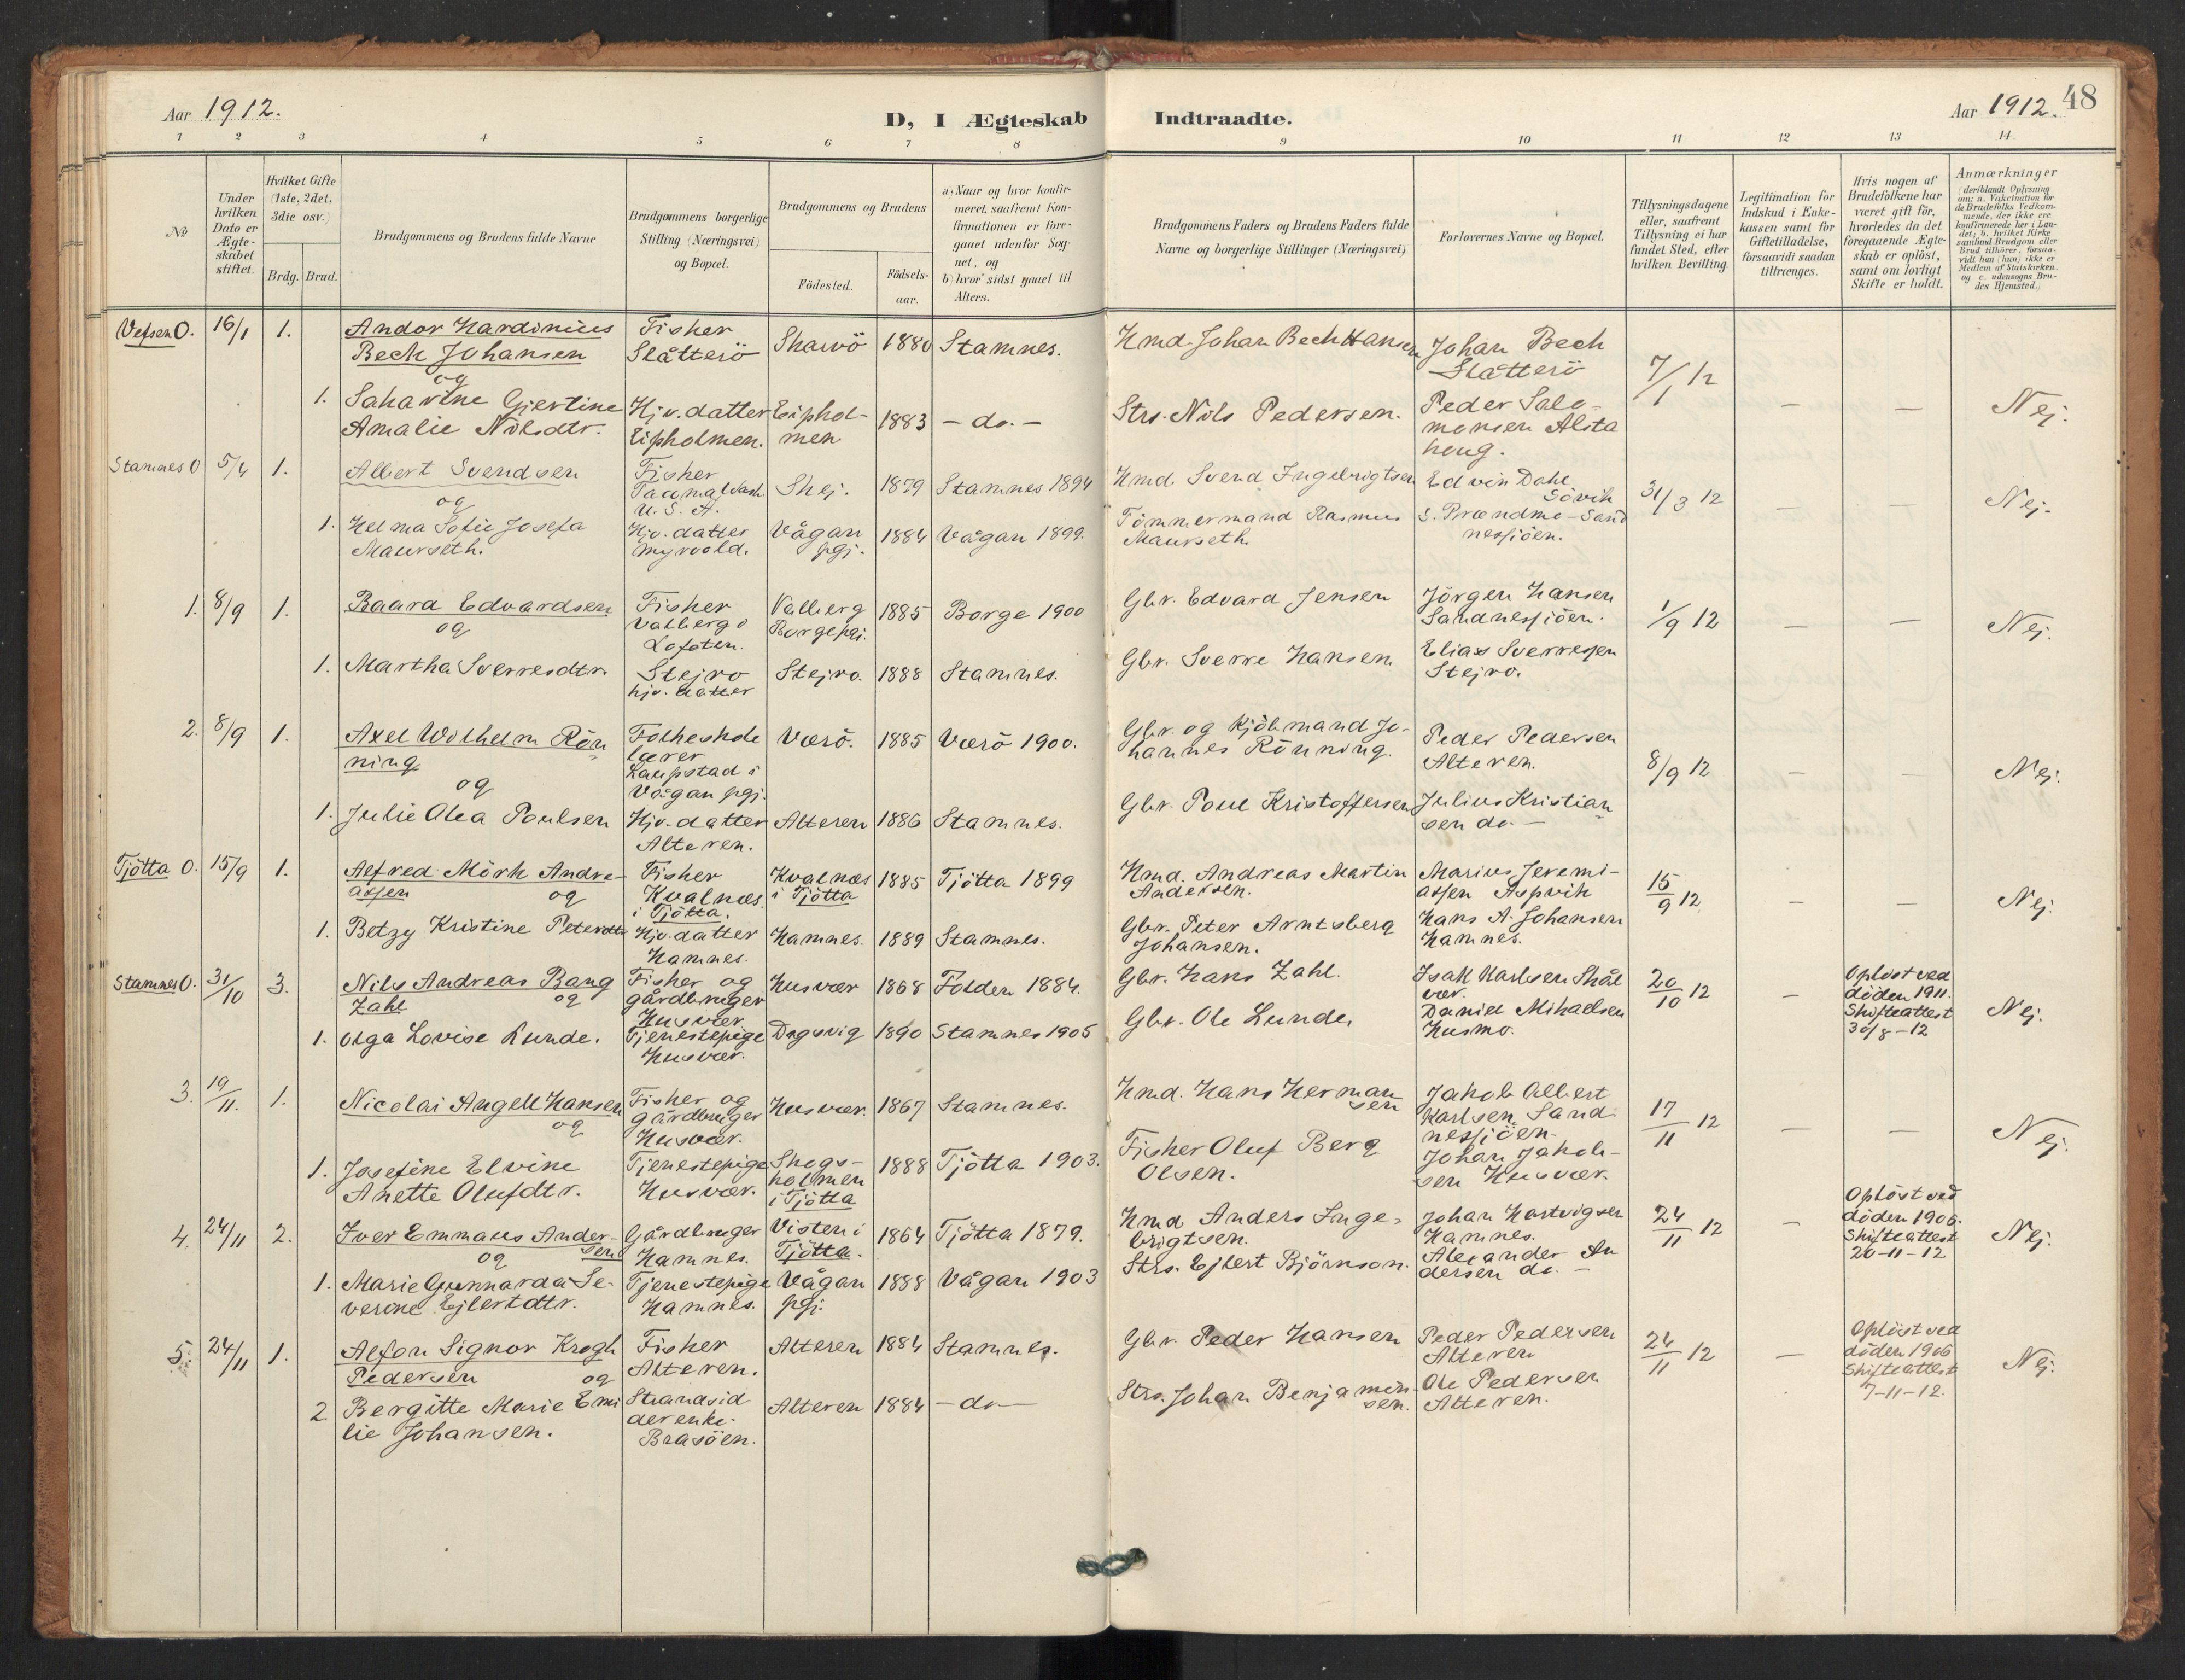 Aar 1912.
D, I Ægteskab Indtraadte.
Aar 1912.
48
1 2 3 4 5 6 7 8 9 10 11 12 13 14
No
Under hvilken Dato er Ægteskabet stiftet.
Hvilket Gifte (1ste, 2det, 3die osv.)
Brdg. Brud.
Brudgommens og Brudens fulde Navne
Brudgommens borgerlige Stilling (Næringsvei) og Bopæl.
Brudgommens og Brudens
Födested.
Födsels-aar.
a) Naar og hvor konfirmeret, saafremt Konfirmationen er foregaaet udenfor Sognet, og
b) hvor sidst gaaet til Alters.
Brudgommens Faders og Brudens Faders fulde Navne og borgerlige Stillinger (Næringsvei)
Forlovernes Navne og Bopæl.
Tillysningsdagene eller, saafremt Tillysning ei har fundet Sted, efter hvilken Bevilling.
Legitimation for Indskud i Enkekassen samt for Giftetilladelse, forsaavidt saadan tiltrænges.
Hvis nogen af Brudefolkene har været gift för, hvorledes da det foregaaende Ægteskab er oplöst, samt om lovligt Skifte er holdt.
Anmærkninger
(deriblandt Oplysning om: a. Vakcination for de Brudefolks Vedkommende, der ikke ere konfirmerede her i Landet; b. hvilket Kirkesamfund Brudgom eller Brud tilhörer, forsaavidt han (hun) ikke er Medlem af Statskirken, og c. udensogns Brudes Hjemsted.)
Vefsen O. 16/1 1. Andor Hardinius
Bech Johansen
og
Fisker
Slåtterö
1880 Stamnes.
Kmd Johan Bech Hansen
Johan Bech
Slåtterö
7/1 12
1. Gjertine
Amalie Nilsdtr.
Hjv. datter
1883 - do. -
Strs. Nils Pedersen.
Peder Salo-
monsen Alsta
houg.
— — Nej.
Stamnes O 5/4 1. Albert Svendsen
og
Fisker
Tacoma Wash.
U. S. A.
1879 Stamnes 1894
Kmd. Svend Ingebrigtsen
Edvin Dahl
Sövik
31/3 12
1. Helma Sofie Josefa
Maurseth.
Hjv. datter
Myrvold.
Vågan
pgj.
1884 Vågan 1899.
Tömmermand Rasmus
Maurseth.
S. Brændmo - Sand
nessjöen.
— — Nej.
1. 8/9 1. Baard Edvardsen
og
Fisker
Valberg
Lofoten.
Valberg
Borge pgj.
1885 Borge 1900
Gbr. Edvard Jensen
Jörgen Hansen
Sandnessjöen.
1/9 12
1. Martha Sverresdtr.
Stejro
hjv. datter
Stejro. 1888 Stamnes.
Gbr. Sverre Hansen
Elias Sverresen
Stejro.
— — Nej.
2. 8/9 1. Axel Wilhelm Rön
ning
og
Folkeskole
lærer
Kaupstad i
Vågan pgj.
Værö. 1885 Værö 1900.
Gbr. og Kjöbmand Jo-
hannes Rönning.
Peder Pedersen
Alteren.
8/9 12
1. Julie Olea Poulsen
Hjv. datter
Alteren.
Alteren 1886 Stamnes.
Gbr. Poul Kristoffersen
Julius Kristian
sen do. -
— — Nej.
Tjötta O. 15/9 1. Alfred Mörk Andre-
assen og
Fisker
Kvalnæs
i Tjötta.
Kvalnæs
i Tjötta
1885 Tjötta 1899
Kmd. Andreas Martin
Andersen.
Marius Jeremi-
assen Aspvik
15/9 12
1. Betzy Kristine Petersdtr
Hjv. datter
Hamnes.
Hamnes. 1889 Stamnes.
Gbr. Peter Arntsberg
Johansen.
Hans A. Johansen
Hamnes.
— — Nej.
Stamnes O. 31/10 3. Nils Andreas Bang
Zahl og
Fisker og
gårdbruger
Husvær
Husvær 1868 Folden 1884.
Gbr. Hans Zahl.
Isak Karlsen Skål
vær.
20/10 12
1. Olga Lovise Lunde.
Tjenestepige
Husvær.
Dagsvig 1890 Stamnes 1905
Gbr. Ole Lunde.
Daniel Mikaelsen
Husmo.
—
Oplöst ved
döden 1911.
Skifteattest
30/8-12
Nej.
3. 19/11. 1. Nicolai Angell Hansen
og
Fisker og
gårdbruger
Husvær.
Husvær. 1867 Stamnes.
Kmd. Hans Herman
sen
Jakob Albert
Karlsen, Sand
nessjöen.
17/11 12
1. Josefine Elvine
Anette Olufdtr.
Tjenestepige
Husvær.
Skogs-
holmen
i Tjötta
1888 Tjötta 1903.
Fisker Oluf Berg
Olsen.
Johan Jakob-
sen Husvær.
— — Nej.
4. 24/11 2. Iver Emmaus Ander-
sen
og
Gårdbruger
Hamnes.
Visten i
Tjötta.
1864 Tjötta 1879.
Kmd Anders Inge-
brigtsen.
Johan Hartvigsen
Hamnes.
24/11 12
1. Marie Gunnarda Se-
verine Ejlertdtr.
Tjenestepige
Hamnes.
Vågan
pgj.
1888 Vågan 1903
Strs. Ejlert Björnson.
Alexander An
dersen do. -
—
Oplöst ved
döden 1906.
Skifteattest
20-11-12
Nej.
5. 24/11 1. Alfon Signor Krogh
Pedersen og
Fisker
Alteren.
Alteren 1884 Stamnes.
Gbr. Peder Hansen
Peder Pedersen
Alteren
24/11 12
2 Bergitte Marie Emi
lie Johansen.
Strandsid
derenke.
Brasöen.
Alteren 1884 - do -
Strs. Johan Benjamin-
sen.
Ole Pedersen
Alteren.
—
Oplöst ved
döden 1906
Skifteattest
7-11-12.
Nej.